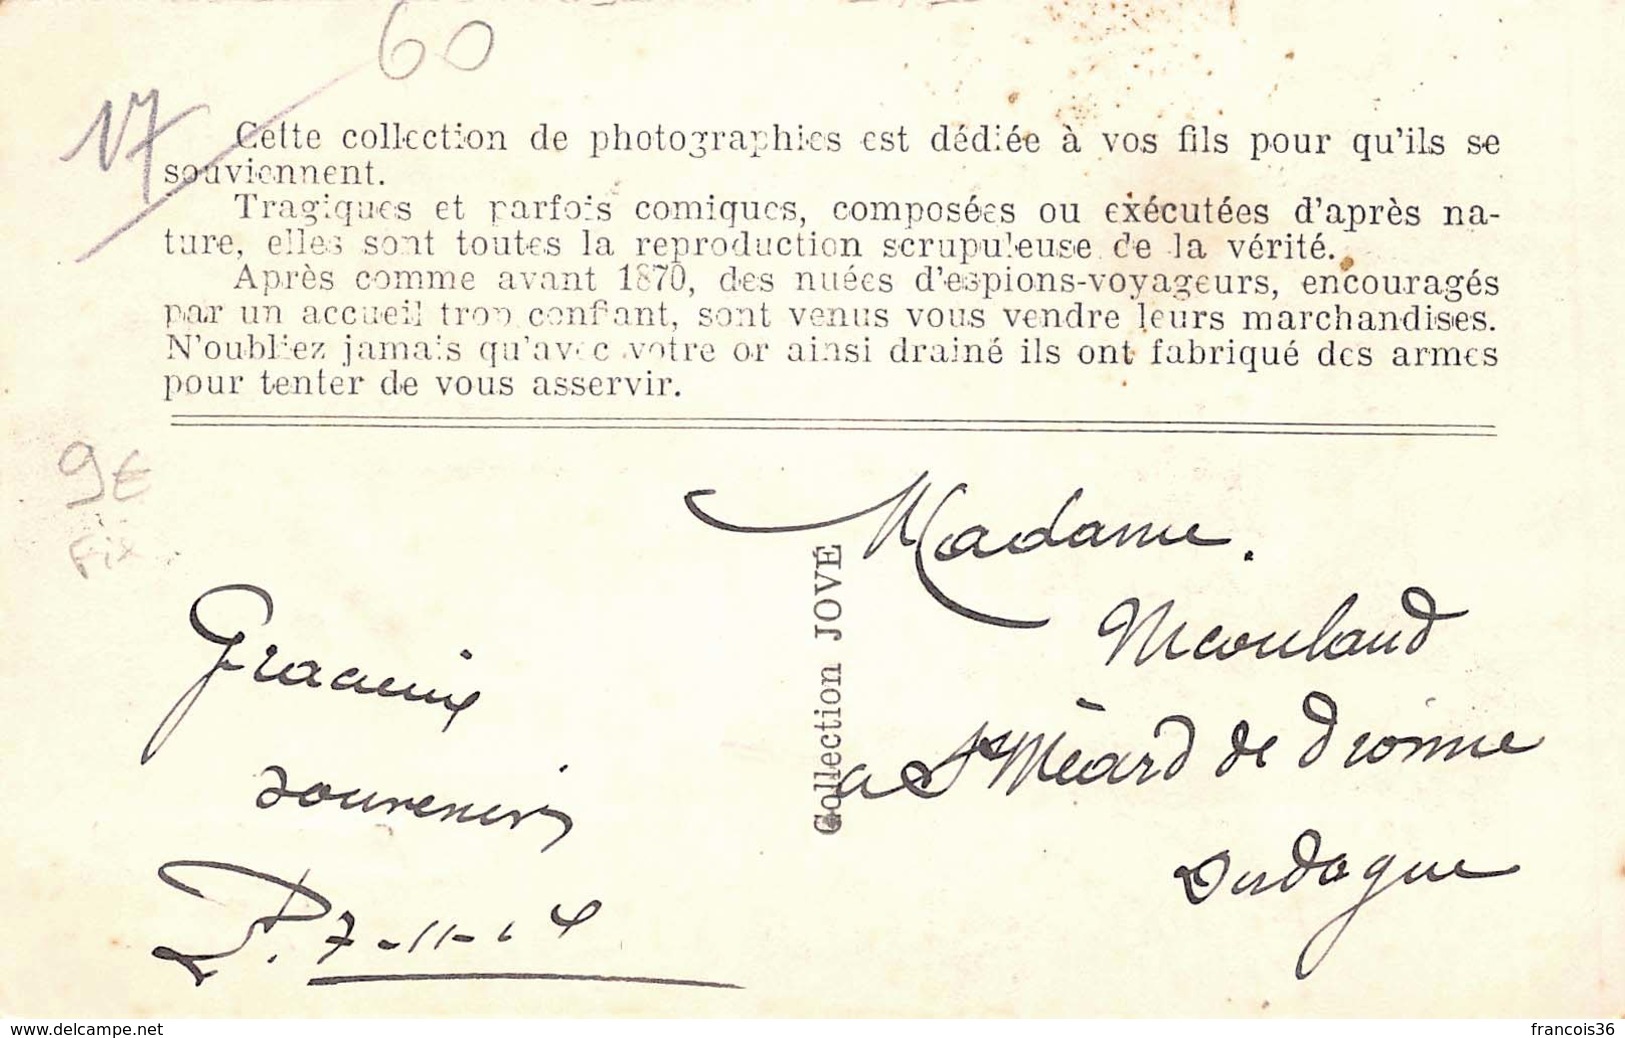 60
17
Cette collection de photographies est dédiée à vos fils pour qu'ils se
souviennent.
Tragiques et parfois comiques, composées ou exécutées d'après na-
ture, elles sont toutes la reproduction scrupuleuse de la vérité.
Après comme avant 1870, des nuées d'espions-voyageurs, encouragés
par un accueil trop confiant, sont venus vous vendre leurs marchandises.
N'oubliez jamais qu'avec votre or ainsi drainé ils ont fabriqué des armes
pour tenter de vous asservir.
9€
Fix
Gracieux
souvenir
7-11-14
Collection JOVÉ
Madame
Mcoulaud
a St Méard de Dronne
Dordogne
www.delcampe.net
francois36